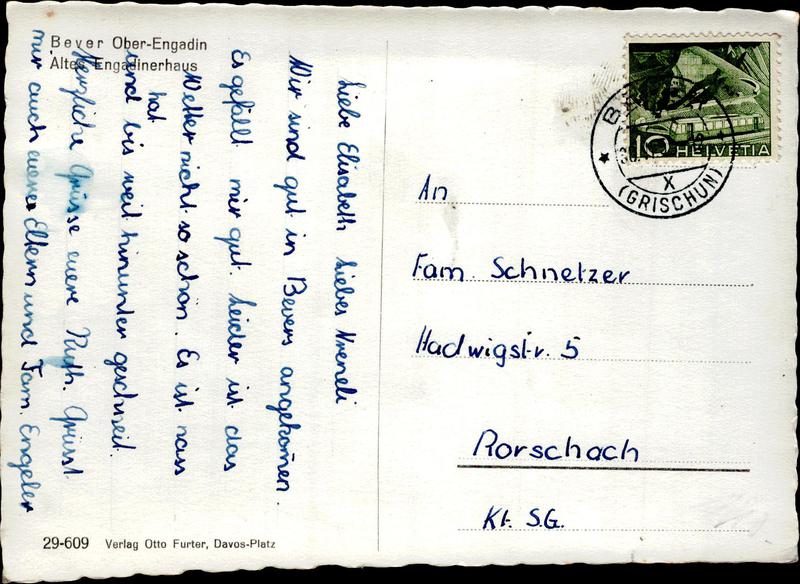 Bever Ober-Engadin
Altes Engadinerhaus
Liebe Elisabeth Liebes Vreneli
Wir sind gut in Bevers angekommen.
Es gefällt mir gut. Leider ist das
Wetter nicht so schön. Es ist nass
und hat bis weit hinunter geschneit.
Herzliche Grüsse eure Ruth. Grüsst
mir auch eueren Eltern und Fam. Engeler
10 HELVETIA
X
(GRISCHUN)
An
Fam. Schnetzer
Hadwigstr. 5
Rorschach
Kt. S.G.
29-609 Verlag Otto Furter, Davos-Platz